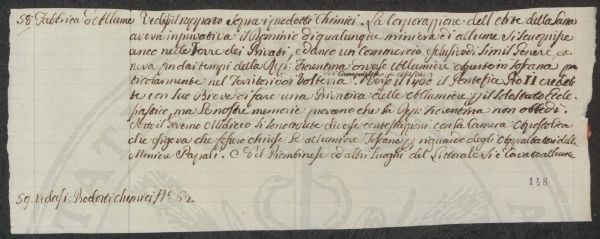 58 Fabbrica d'Allume Vedi il rapporto sopra i prodotti Chimici. La Corporazione dell'Arte della Lana
aveva in privativa il Dominio di qualunque miniera di allume si scuoprisse
anco nelle Terre dei Privati, e dava un commercio esclusivo di simil Genere, e
fin dai tempi della Rep: Fiorentina diverse Allumiere in Toscana par
ticolarmente nel Territorio di Volterra. Verso il 1460 il Pontefice Pio II
con suo Breve di fare una Privativa delle Allumiere il solo Stato Eccle
siastico, ma le nostre memorie provano che la Rep: Fiorentina non obbedì.
Sotto il Governo Mediceo si diverse contestazioni con la Camera Apostolica
che esigeva che fossero chiuse le allumiere Toscane, a riguardo degli Appaltatori delle
Miniere Papali. il Piombinese ed altri Luoghi del Littorale si è Cavato allume
148
59 vedasi Prodotti chimici N.º 52